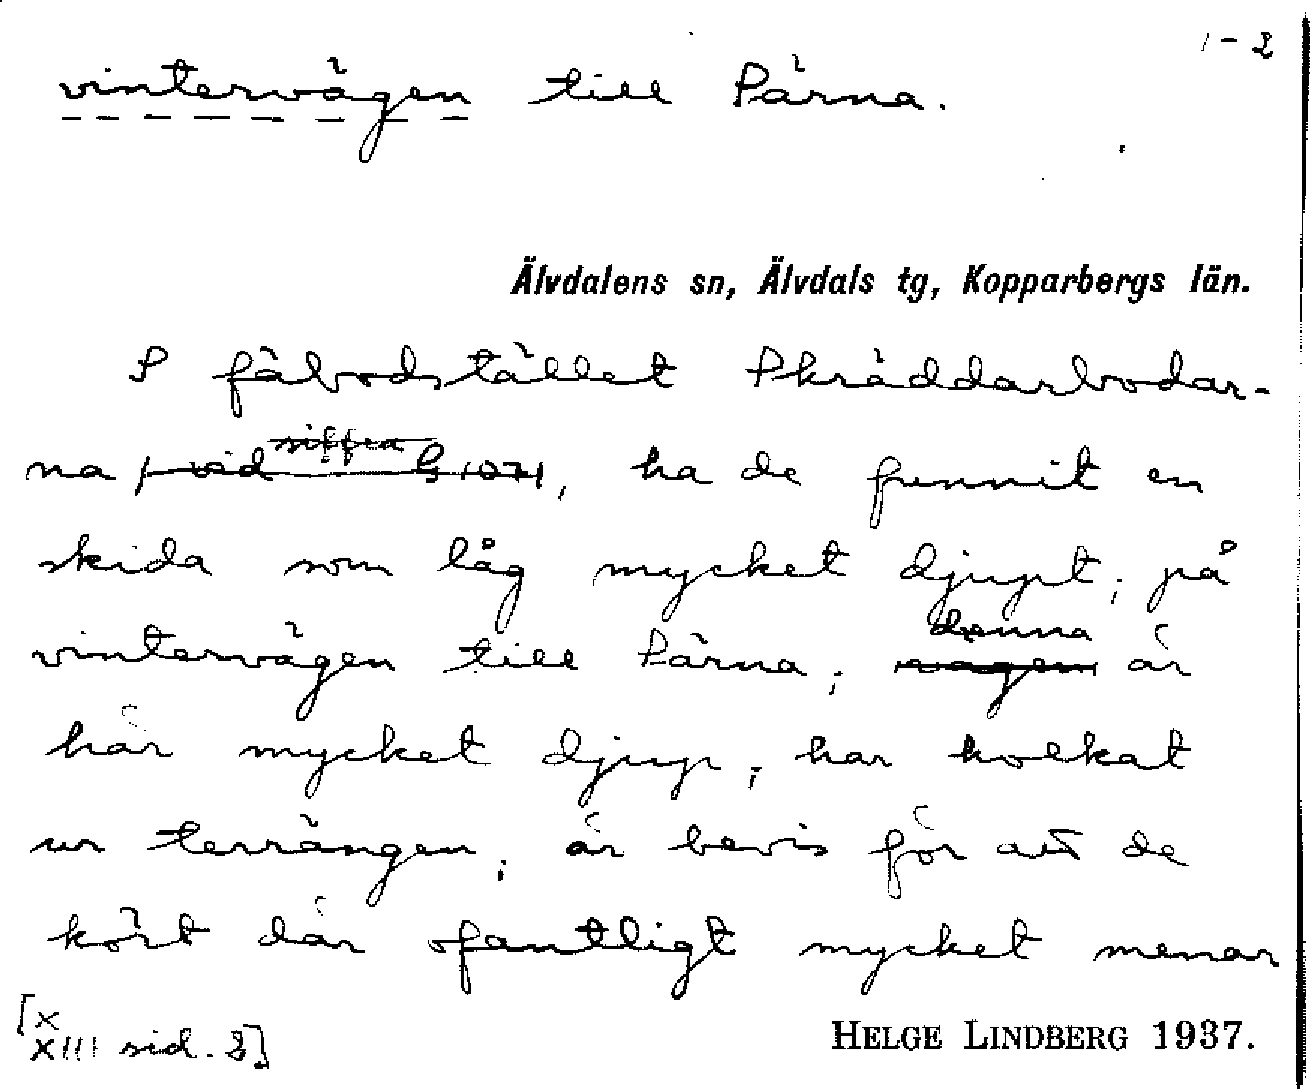 1-2
vintervägen till Särna.
Älvdalens sn, Älvdals tg, Kopparbergs län.
I fäbodstället Skräddarbodar-
na, ha de funnit en
skida som låg mycket djupt, på
denna
vintervägen till Särna; vägen är
här mycket djup, har holkat
ur terrängen, är bevis för att de
kört där ofantligt mycket menar
[X
XIII sid. 3]
HELGE LINDBERG 1937.